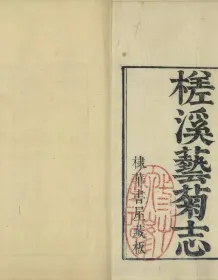 槎溪藝菊志
棣華書屋藏板